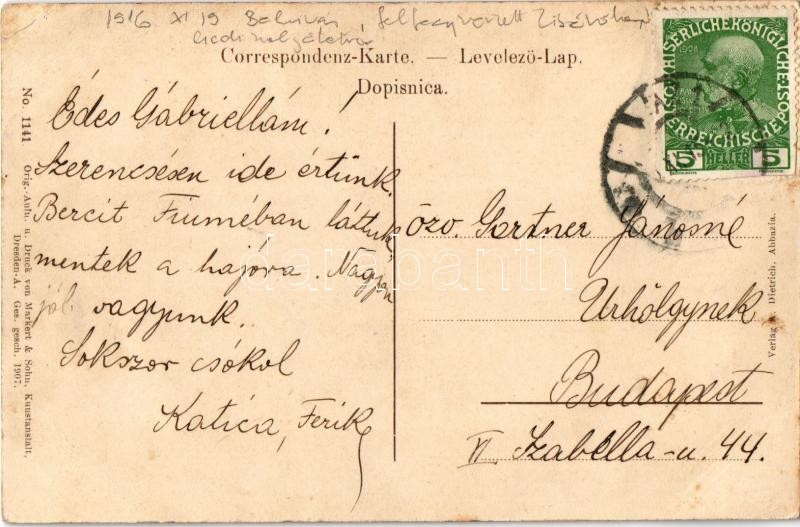 1916 XI 19
Correspondenz-Karte. — Levelezö-Lap.
Dopisnica.
KAISERLICHEKÖNIGLICHE
ÖSTERREICHISCHE POST
1908
5 HELLER 5
Édes Gábriellám!
Szerencsésen ide értünk.
Bercit Fiuméban láttuk
mentek a hajóra. Nagyon
jól vagyunk.
Sokszor csókol
Katica, Ferik
özv. Gartner Jánosné
Urhölgynek
Budapest
VI. Izabella-u. 44.
No. 1141. Orig.-Aufn. u. Druck von Markert & Sohn, Kunstanstalt,
Dresden-A. Ges. gesch. 1907.
Verlag A. Dietrich, Abbazia.
darabanth